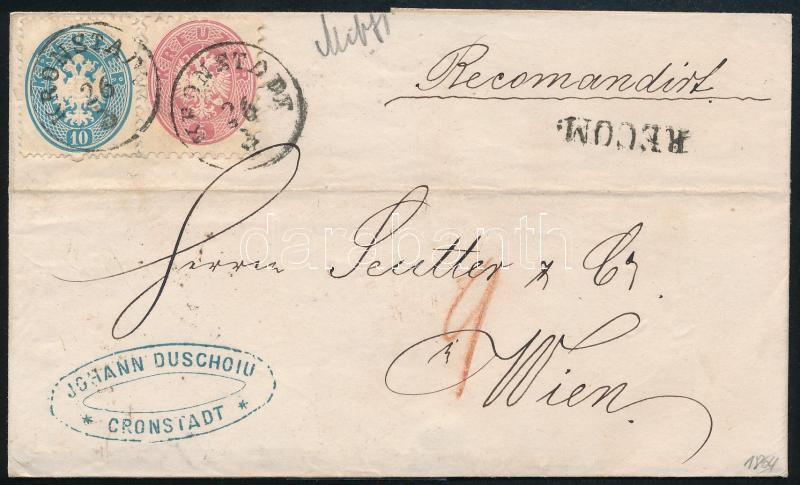 KRONSTADT
26
3
10
KREUZER
KRONSTADT
26
3
5
Recomandirt.
RECOM.
Herrn Scutter & Co
Wien.
9
JOHANN DUSCHOIU
* CRONSTADT *
1864
darabanth